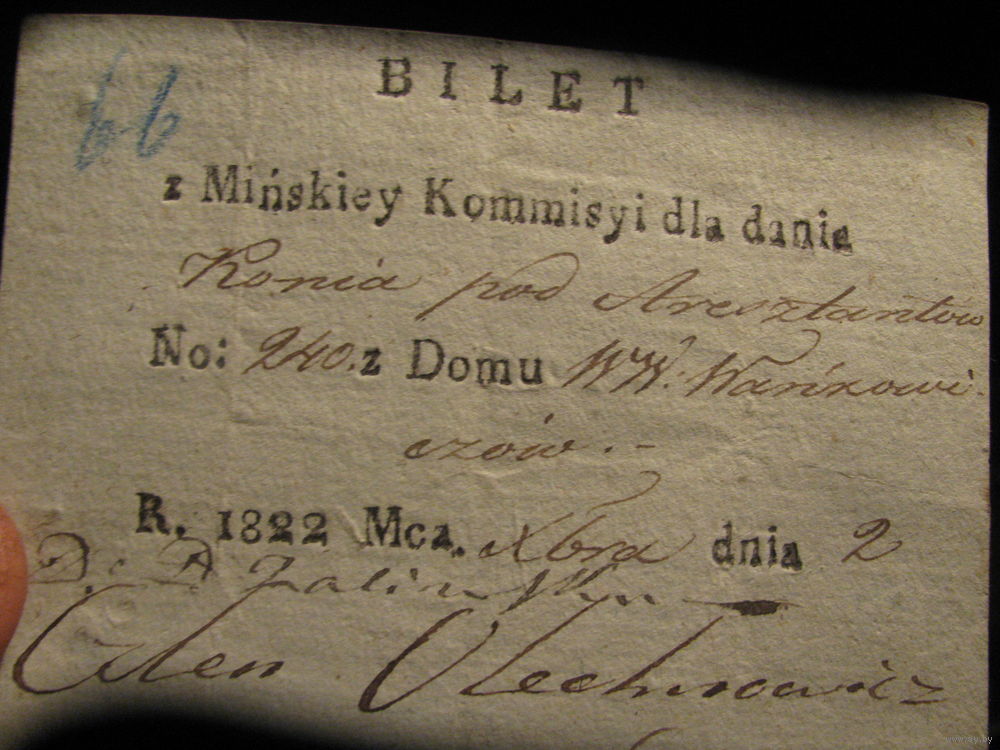 66
BILET
z Mińskiey Kommisyi dla dania
Konia pod Aresztantów
No: 240. z Domu WW. Wańkowi-
czów. -
R. 1822 Mca. Xbra dnia 2
Człen Olechnowicz